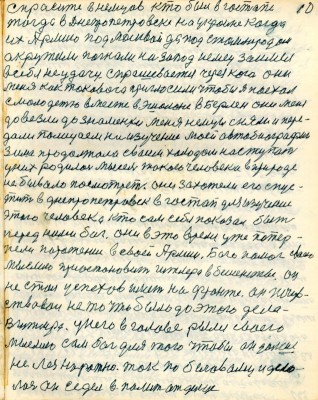 10
спрасите в немцов кто был в гостапе
тогда в Днепропетровск на Украине когда
их Армию под Москвой да под Сталинградом
окружили погнали на запад немец заимел
в себя неудачу спрашивается через кого они
меня как такового пригласили чтобы я поехал
с молодежю вместе в эшалоне в Берлен они меня
довезли до знаменки меня немцы сняли и пере-
дали полицаем на изучение моей автобиографии
Зима продолжала своим холодом наступать
у них родилась мысль такого человека в природе
не бывало посмотреть. они захотели его спус-
тить в днепропетровск в гостап для изучение
этого человека, кто сам себя показал быть
перед ними бог. они в это время уже потер-
пели поражение в своей Армии, Бого помог свою
мыслию приостановить гитлера в бешенстве. он
не стал успехов иметь на фронте. он чувс-
ствовал не то что было до этого дела-
в гитлера. у него в голове рыли своего
мыслию сам бог для того чтобы он войско
не ладнаротно. так по бываломуи дело-
лося он седел в полит отделе